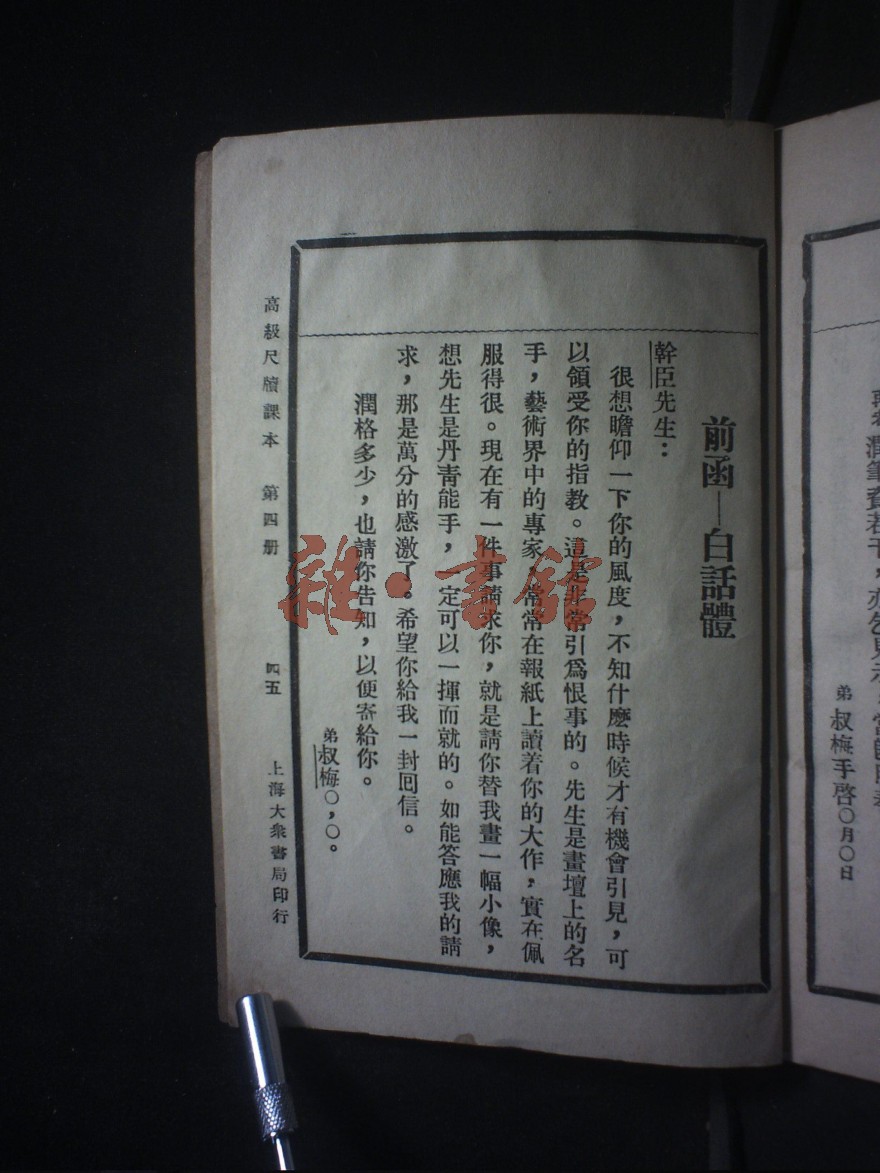 前函—白話體
幹臣先生：
很想瞻仰一下你的風度，不知什麽時候才有機會引見，可
以領受你的指教。這是非常引爲恨事的。先生是畫壇上的名
手，藝術界中的專家，常常在報紙上讀着你的大作，實在佩
服得很。現在有一件事請求你，就是請你替我畫一幅小像，
想先生是丹靑能手，一定可以一揮而就的。如能答應我的請
求，那是萬分的感激了。希望你給我一封囘信。
潤格多少，也請你告知，以便寄給你。
弟叔梅〇，〇。
高級尺牘課本　第四册　四五　上海大衆書局印行
潤筆費若干，亦
弟　叔梅手啓〇月〇日
雜·書館